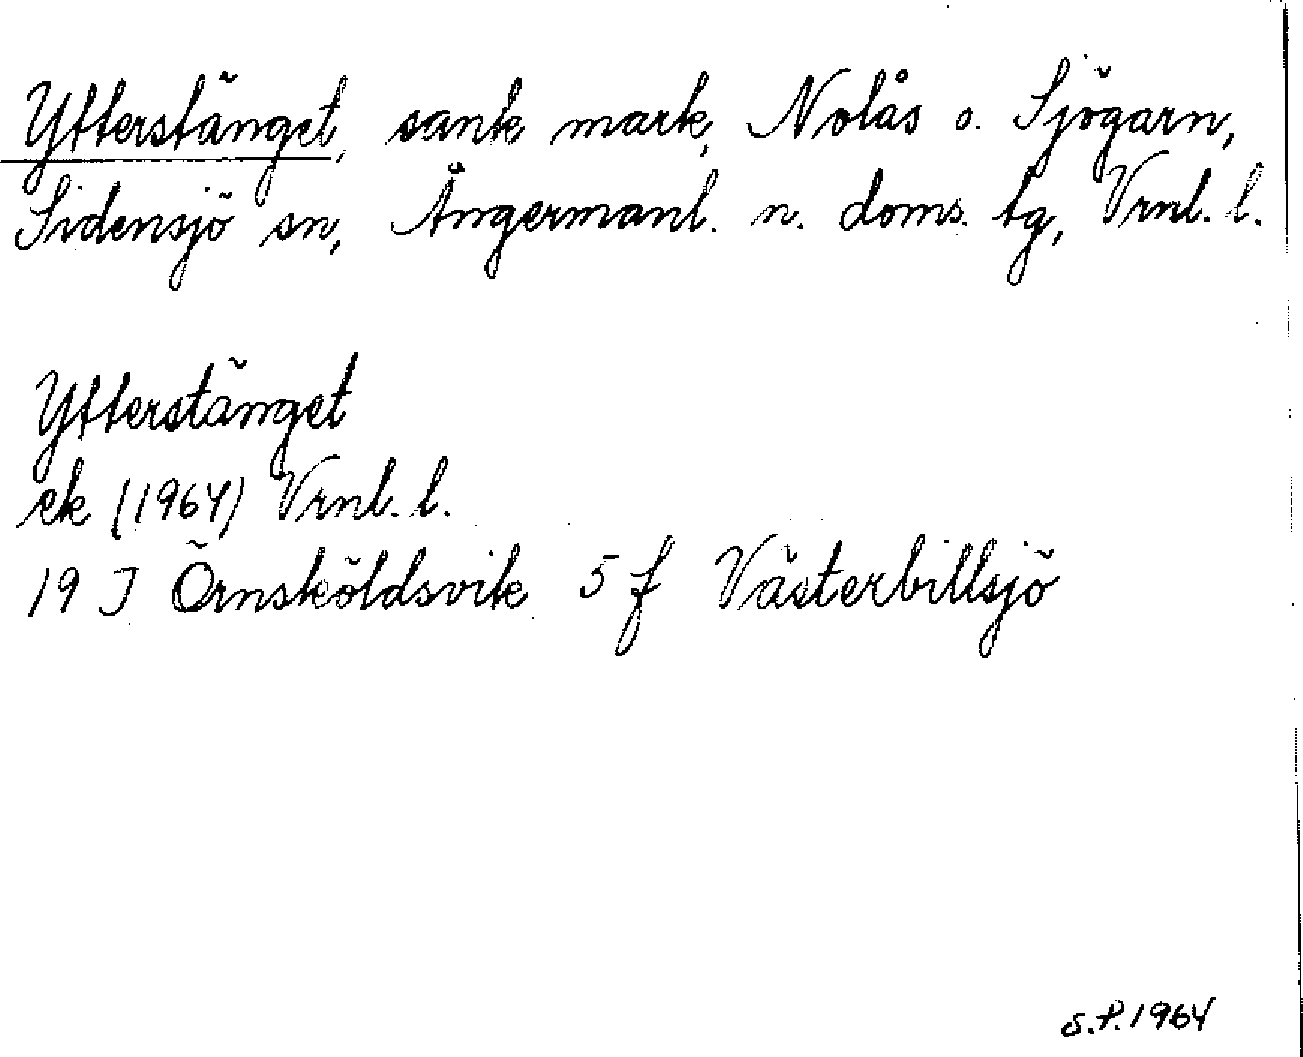 Ytterstänget, sank mark, Nolås o. Sjögarn,
Sidensjö sn, Ångermanl. n. doms. tg, Vrnl. l.
Ytterstänget
ek (1964) Vrnl. l.
19 J Örnsköldsvik 5 f Västerbillsjö
S.P. 1964